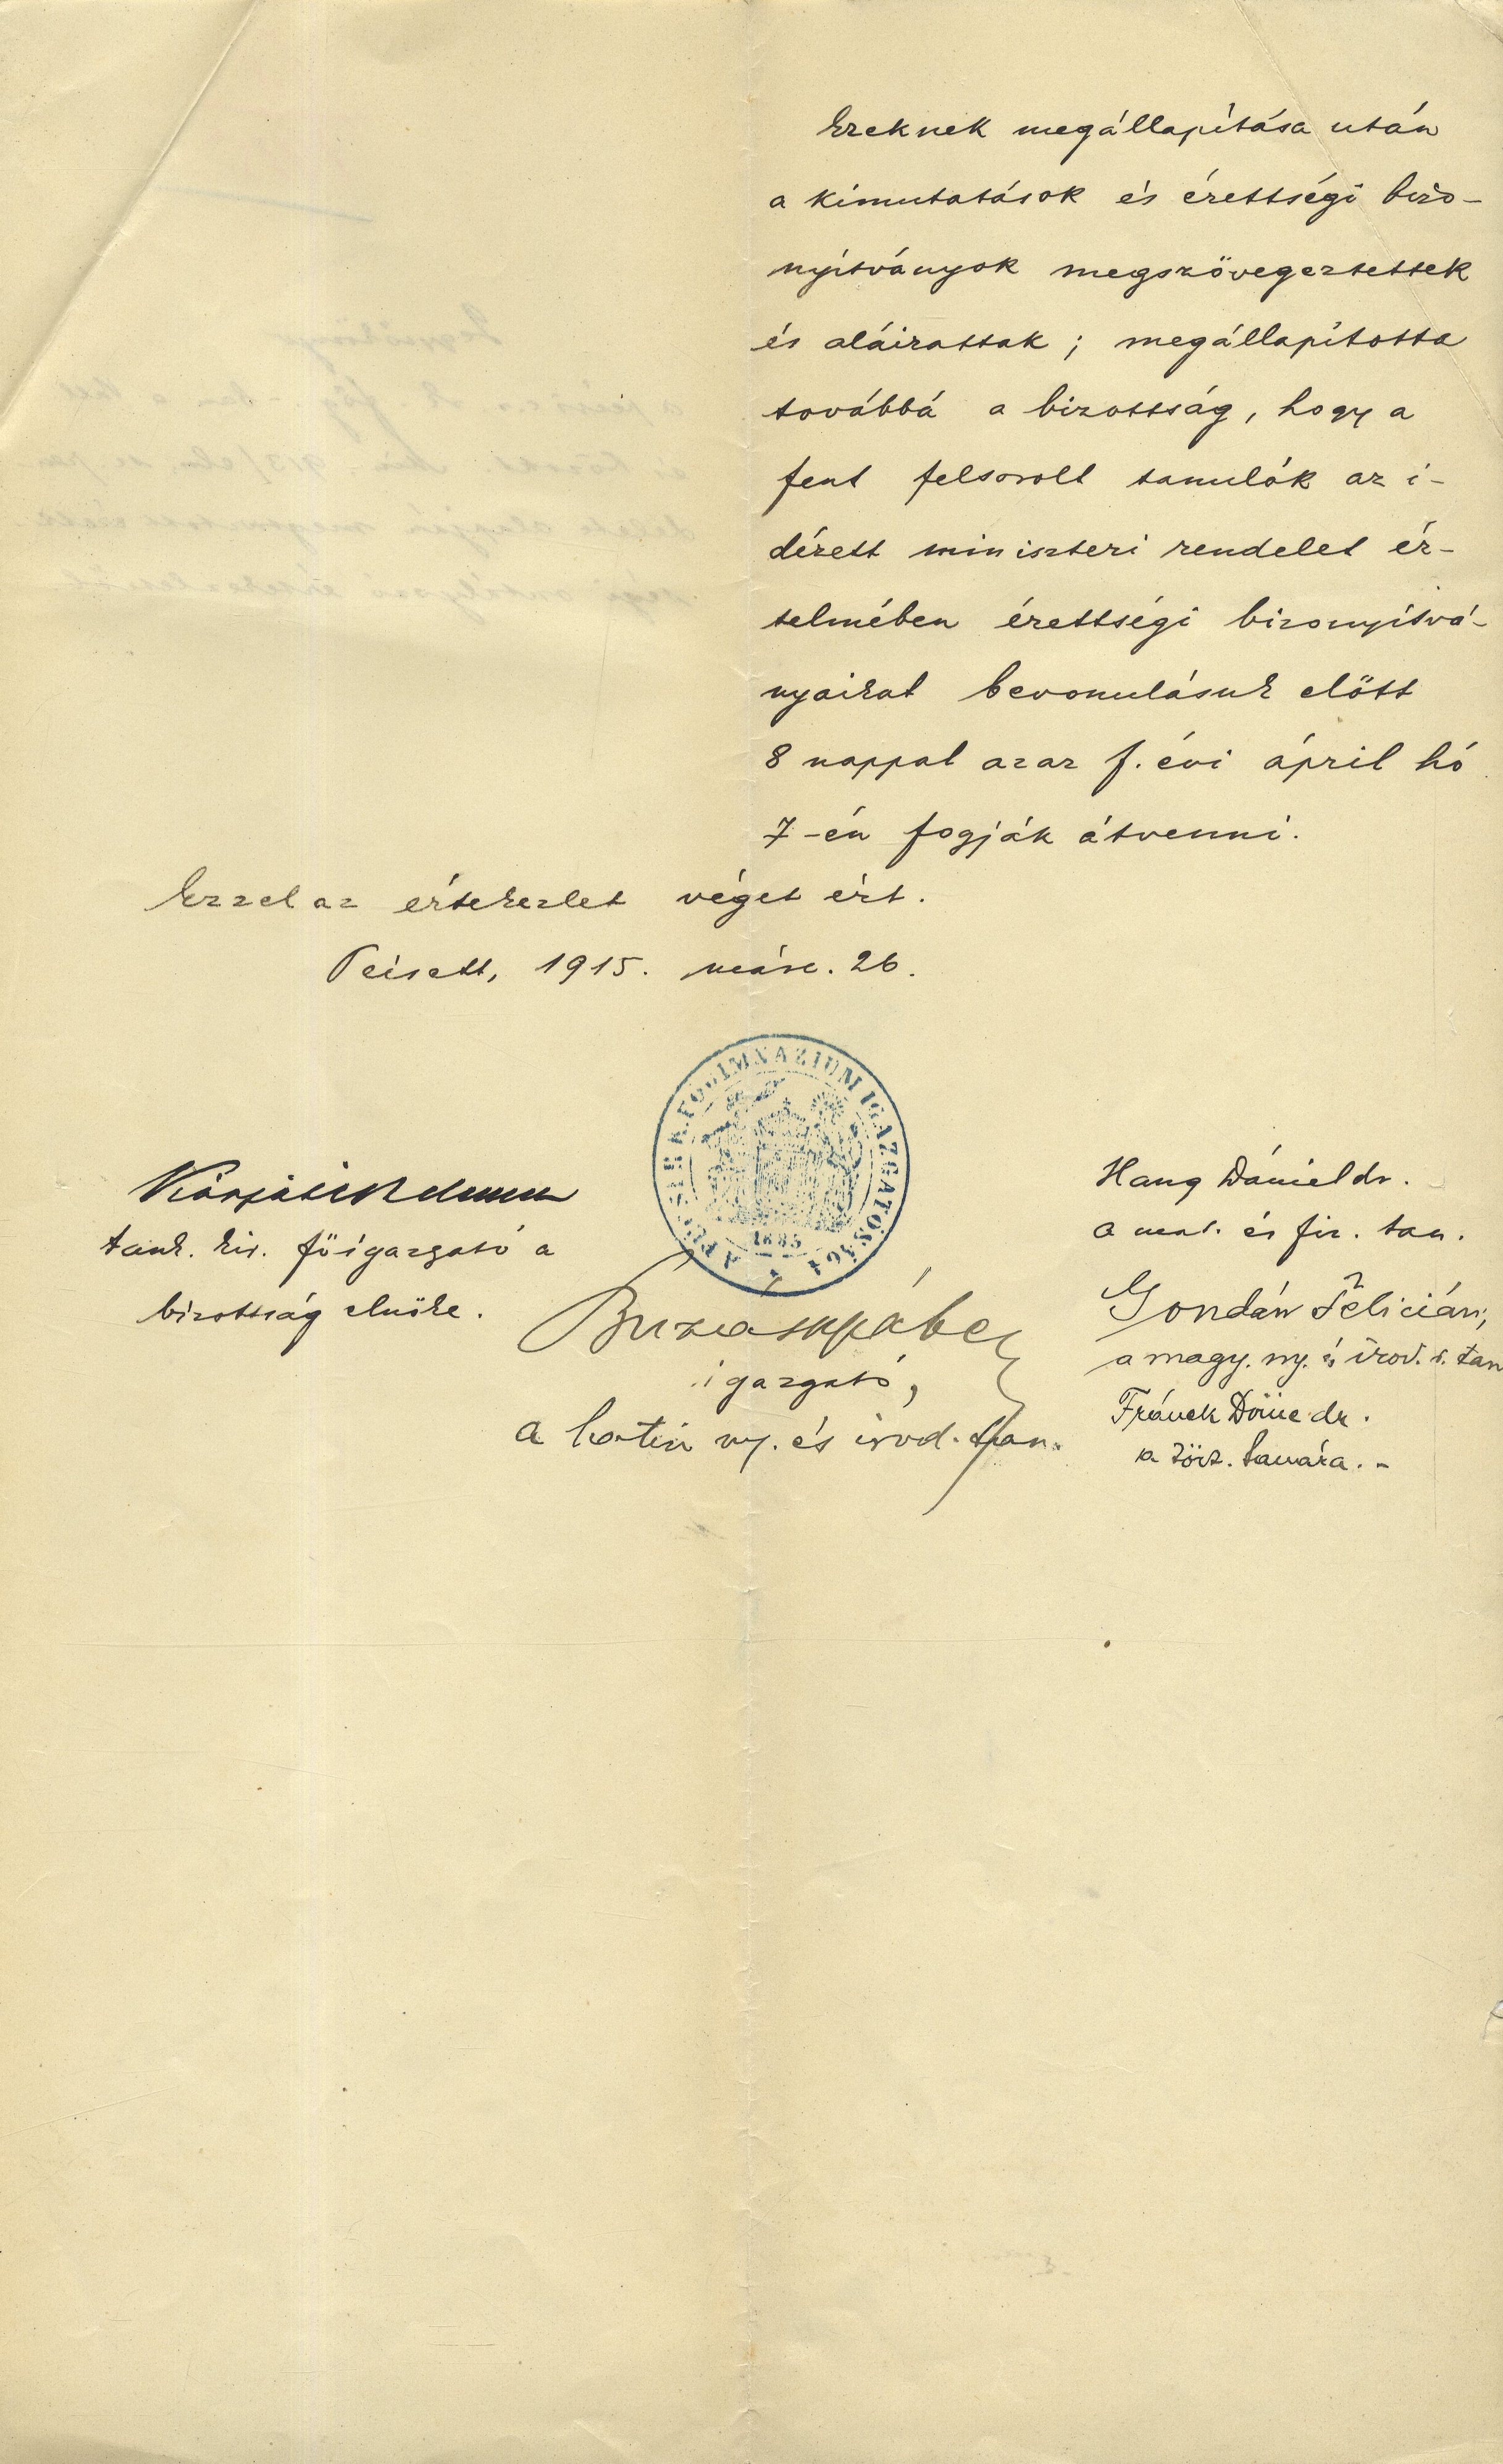 Ezeknek megállapítása után
a kimutatások és érettségi bizo-
nyítványok megszövegeztettek
és aláirattak; megállapította
továbbá a bizottság, hogy a
fent felsorolt tanulók az i-
dézett miniszteri rendelet ér-
telmében érettségi bizonyítvá-
nyaikat bevonulásuk előtt
8 nappal azaz f. évi április hó
7-én fogják átvenni.
Ezzel az értekezlet véget ért.
Pécsett, 1915. márc. 26.
FŐGIMNÁZIUM IGAZGATÓSÁGA
1885
Kárpáti Kelemen
tank. kir. főigazgató a
bizottság elnöke.
igazgató,
a latin ny. és irod. tan.
Hang Dániel dr.
a mat. és fiz. tan.
Gondán Felicián,
a magy. ny. és irod. r. tan
Fránek Döme dr.
a tört. tanára. -